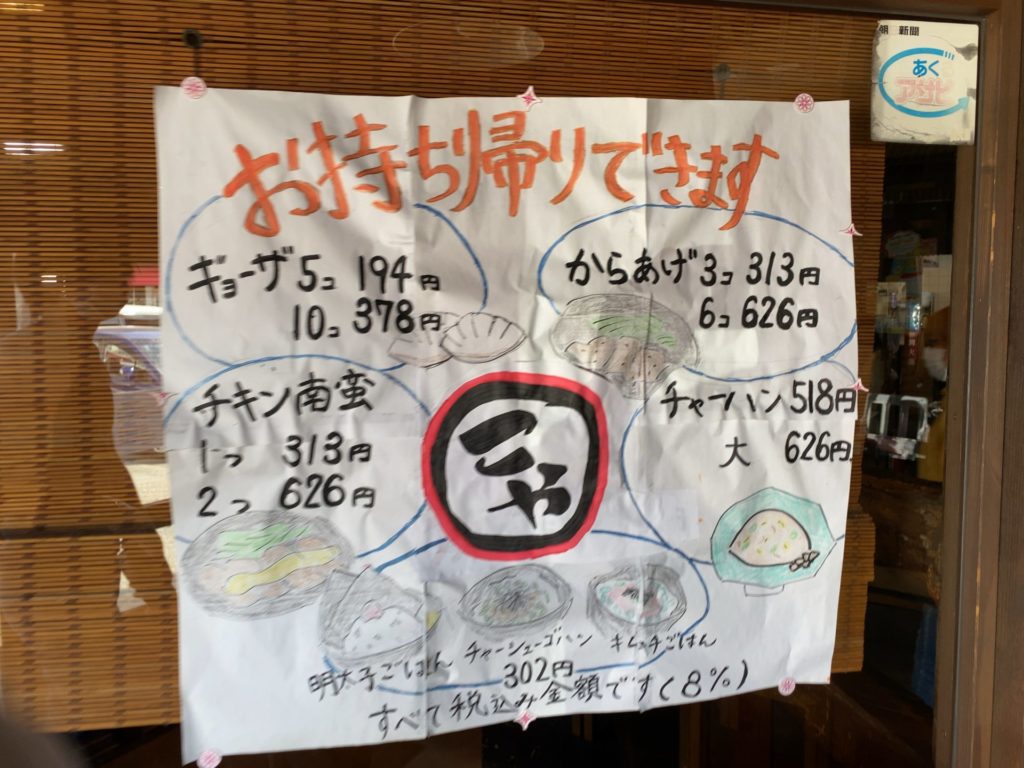 お持ち帰りできます
ギョーザ 5コ 194円
10コ 378円
からあげ 3コ 313円
6コ 626円
チキン南蛮
1つ 313円
2つ 626円
チャーハン 518円
大 626円
こや
明太子ごはん チャーシューゴハン キムチごはん
302円
すべて税込み金額です(8%)
朝 新聞
あく
アサヒ